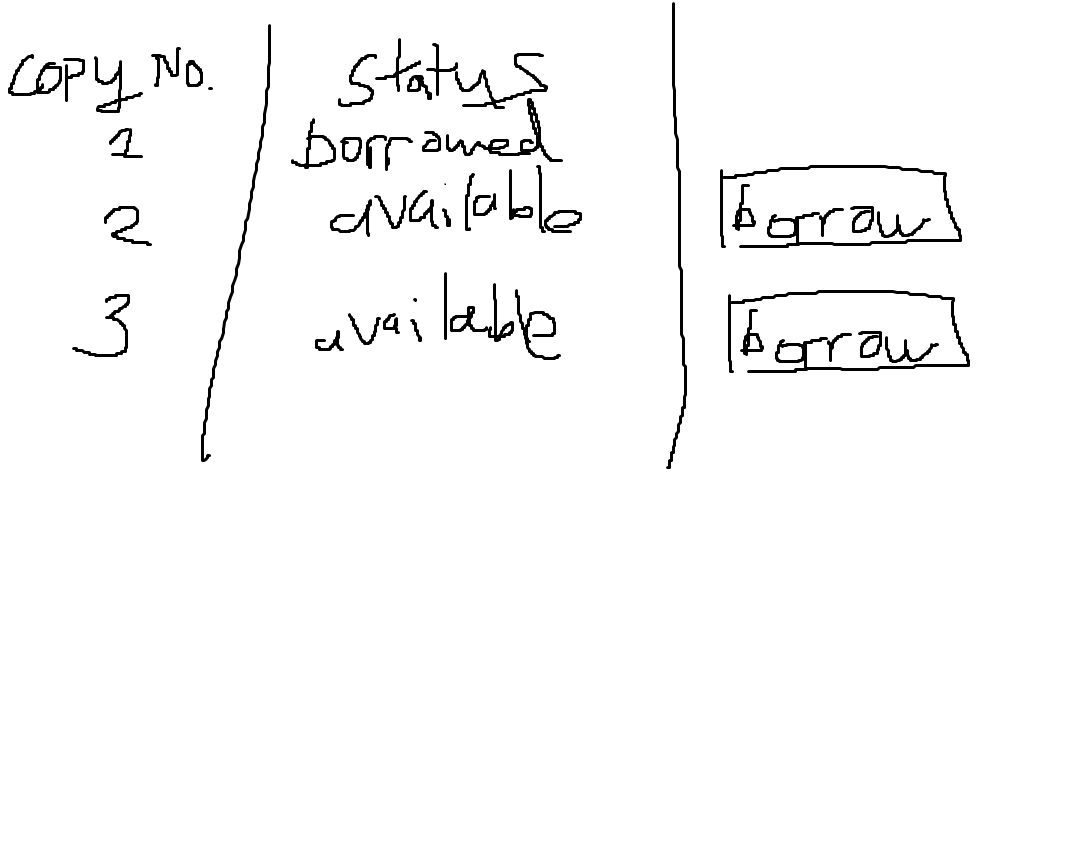 Copy No. Status
1 borrowed
2 available borrow
3 available borrow